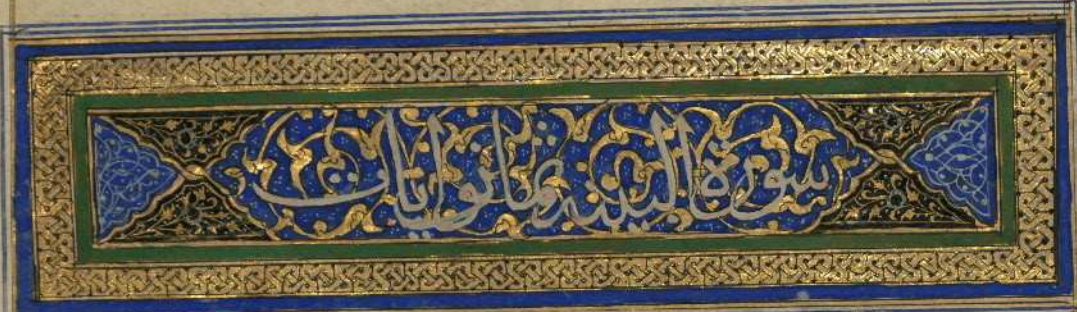 سورة البينة ثمانو ايات